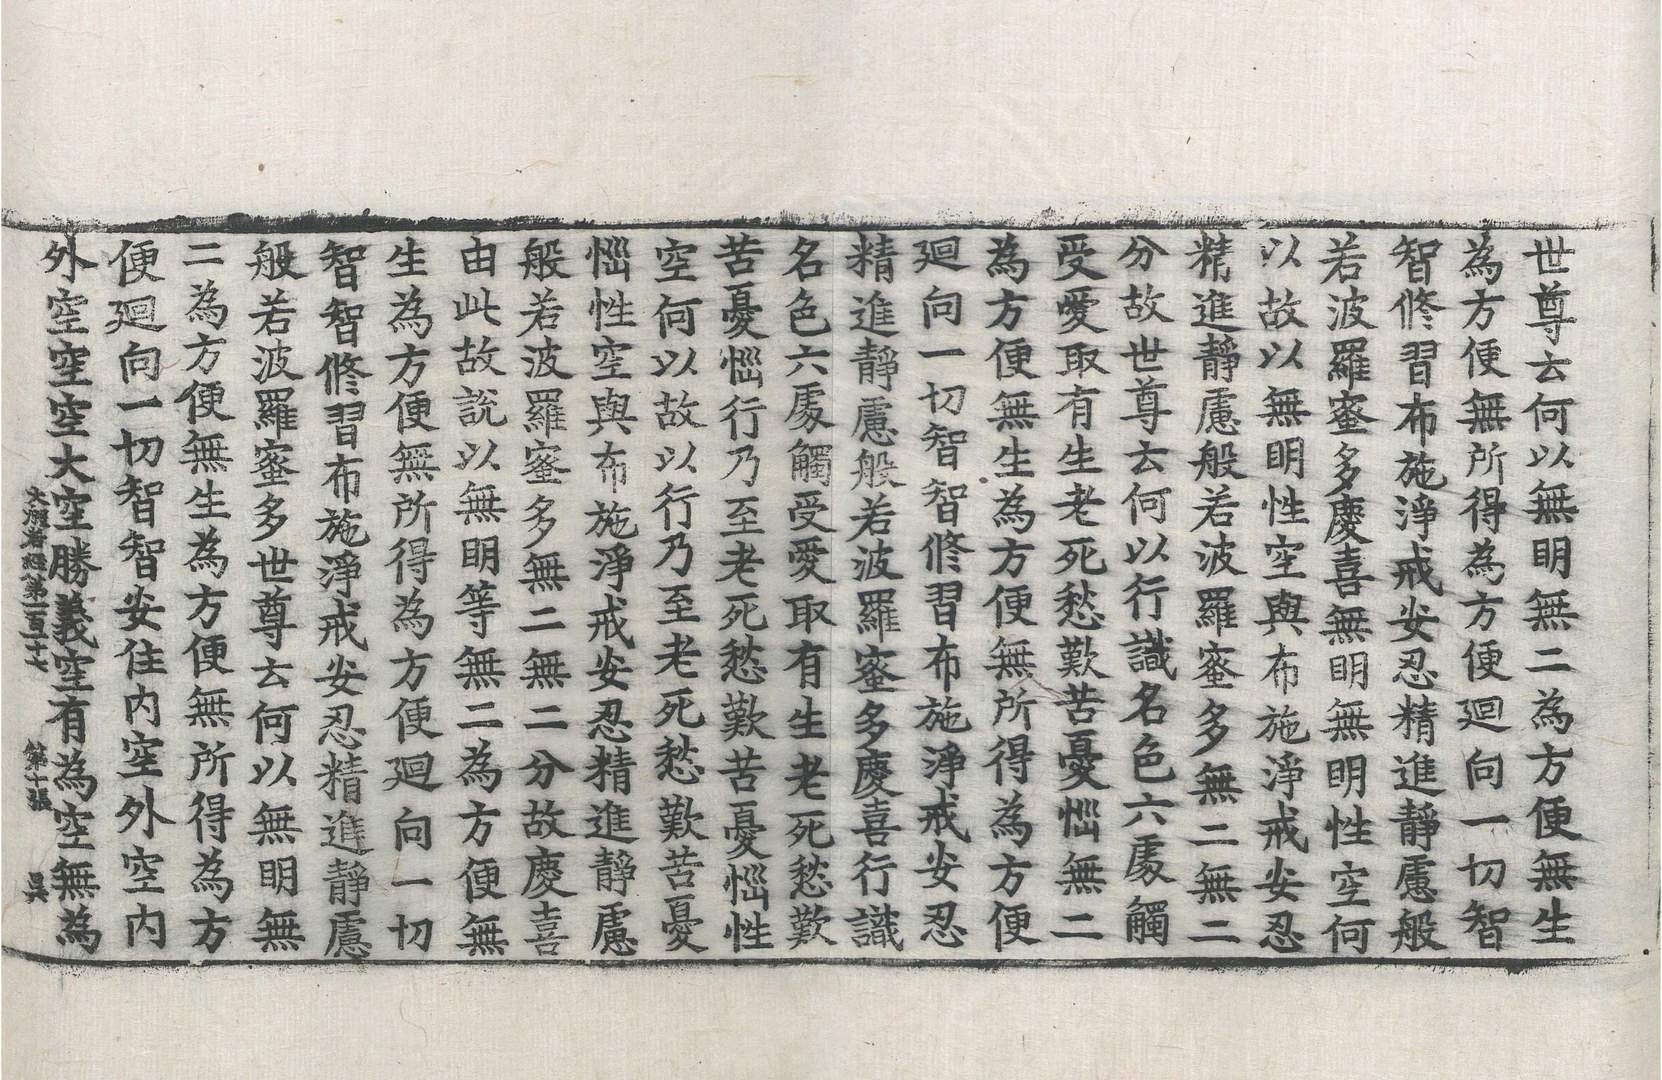 世尊云何以無明無二為方便無生
為方便無所得為方便廻向一切智
智修習布施淨戒安忍精進靜慮般
若波羅蜜多慶喜無明無明性空何
以故以無明性空與布施淨戒安忍
精進靜慮般若波羅蜜多無二無二
分故世尊云何以行識名色六處觸
受愛取有生老死愁歎苦憂惱無二
為方便無生為方便無所得為方便
廻向一切智智修習布施淨戒安忍
精進靜慮般若波羅蜜多慶喜行識
名色六處觸受愛取有生老死愁歎
苦憂惱行乃至老死愁歎苦憂惱性
空何以故以行乃至老死愁歎苦憂
惱性空與布施淨戒安忍精進靜慮
般若波羅蜜多無二無二分故慶喜
由此故說以無明等無二為方便無
生為方便無所得為方便廻向一切
智智修習布施淨戒安忍精進靜慮
般若波羅蜜多世尊云何以無明無
二為方便無生為方便無所得為方
便廻向一切智智安住內空外空內
外空空空大空勝義空有為空無為
大般若經第一百一十七 第十張 吳